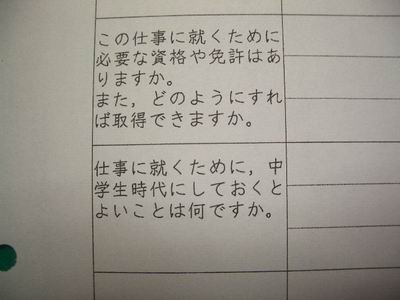 この仕事に就くために
必要な資格や免許はあ
りますか。
また，どのようにすれ
ば取得できますか。
仕事に就くために，中
学生時代にしておくと
よいことは何ですか。